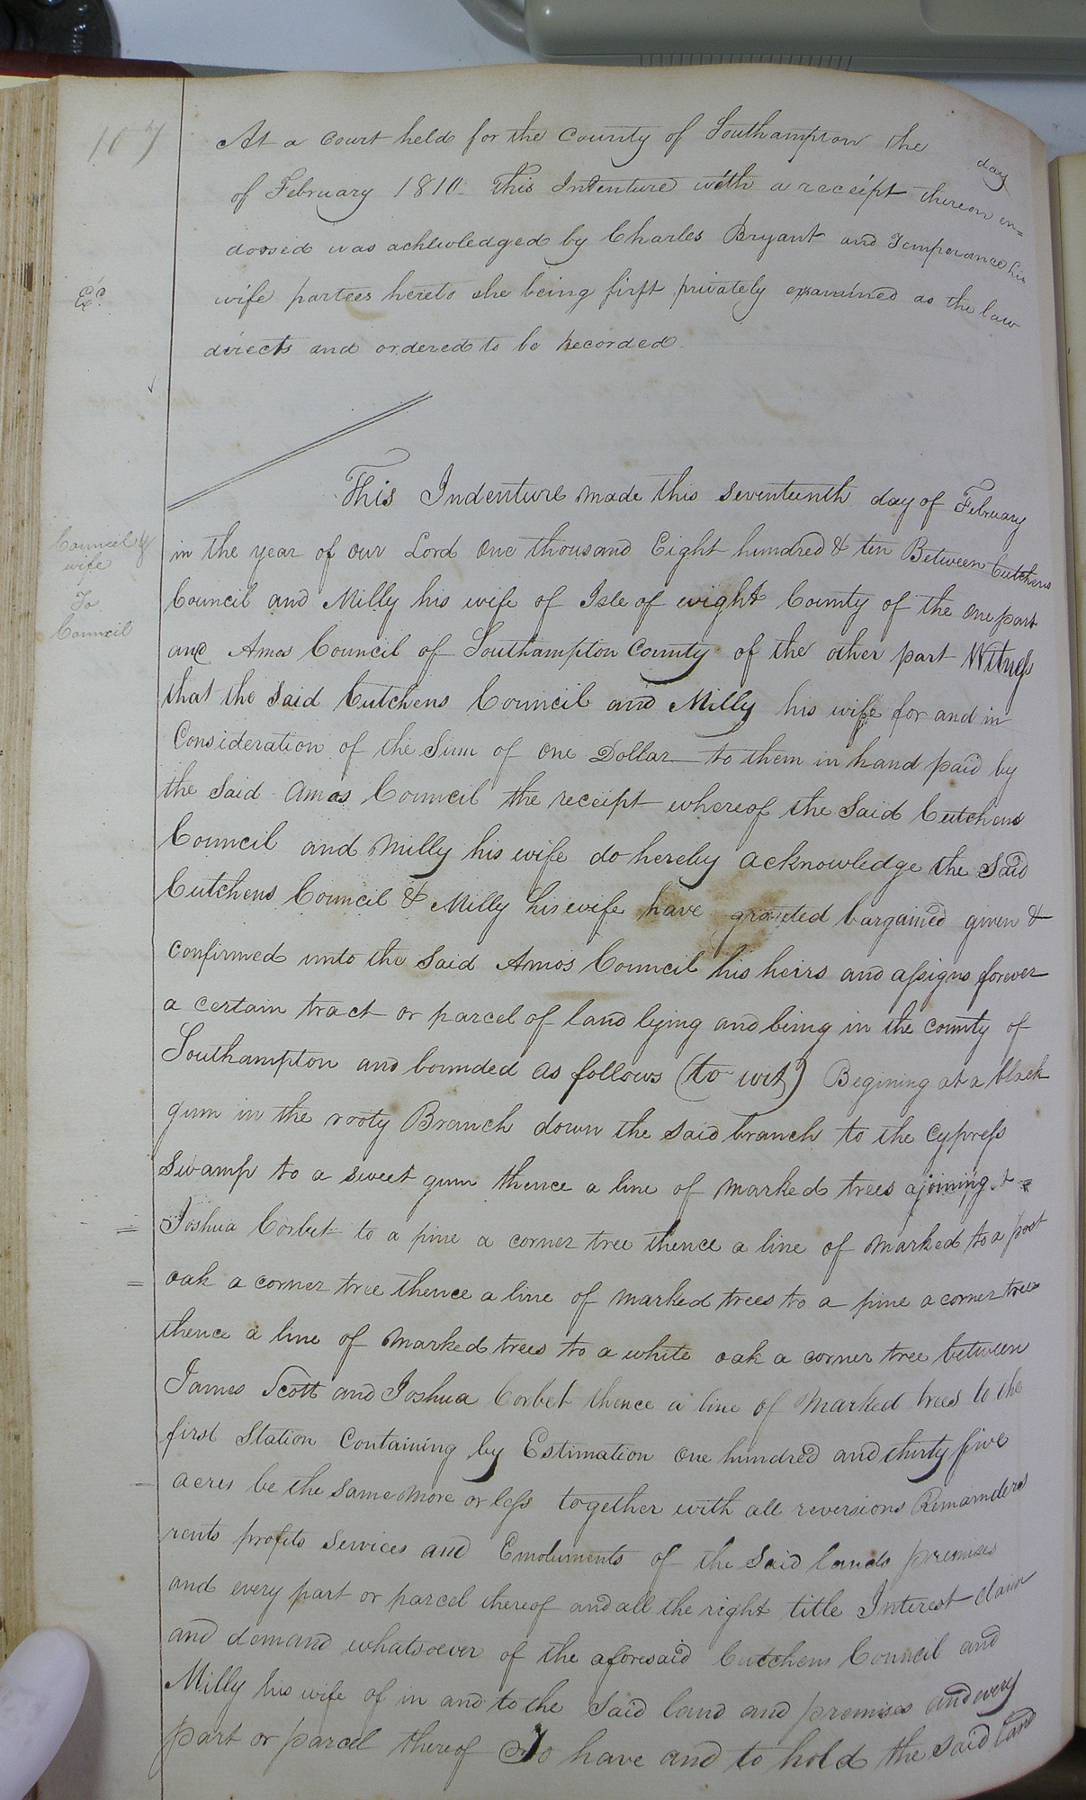 107
At a Court held for the County of Southampton the day
of February 1810 This Indenture with a receipt thereon en=
dorsed was acknledged by Charles Bryant and Temperance his
wife partees hereto she being first privately examined as the law
directs and ordered to be Recorded
Exd.
This Indenture made this seventeenth day of February
in the year of our Lord One thousand Eight hundred & ten Between Cutchens
Council and Milly his wife of Isle of wight County of the one part
and Amos Council of Southampton County of the other part Witness
that the said Cutchens Council and Milly his wife for and in
Consideration of the Sum of One Dollar to them in hand paid by
the Said Amos Council the receipt whereof the Said Cutchens
Council and Milly his wife do hereby acknowledge the Said
Cutchens Council & Milly his wife have granted bargained given &
confirmed unto the Said Amos Council his heirs and assigns forever
a certain tract or parcel of land lying and being in the county of
Southampton and bounded as follows (to wit) Begining at a black
gum in the rooty Branch down the said branch to the Cypress
Swamp to a sweet gum thence a line of marked trees ajoining
Joshua Corbet to a pine a corner tree thence a line of marked to a post
oak a corner tree thence a line of marked trees to a pine a corner tree
thence a line of marked trees to a white oak a corner tree between
James Scott and Joshua Corbet thence a line of marked trees to the
first Station Containing by Estimation One hundred and thirty five
acres be the same more or less together with all reversions Remainders
rents profits services and Emoluments of the Said lands premises
and every part or parcel thereof and all the right title Interest claim
and demand whatsoever of the aforesaid Cutchens Council and
Milly his wife of in and to the Said land and premises and every
part or parcel thereof To have and to hold the said land
Council &
wife
To
Council